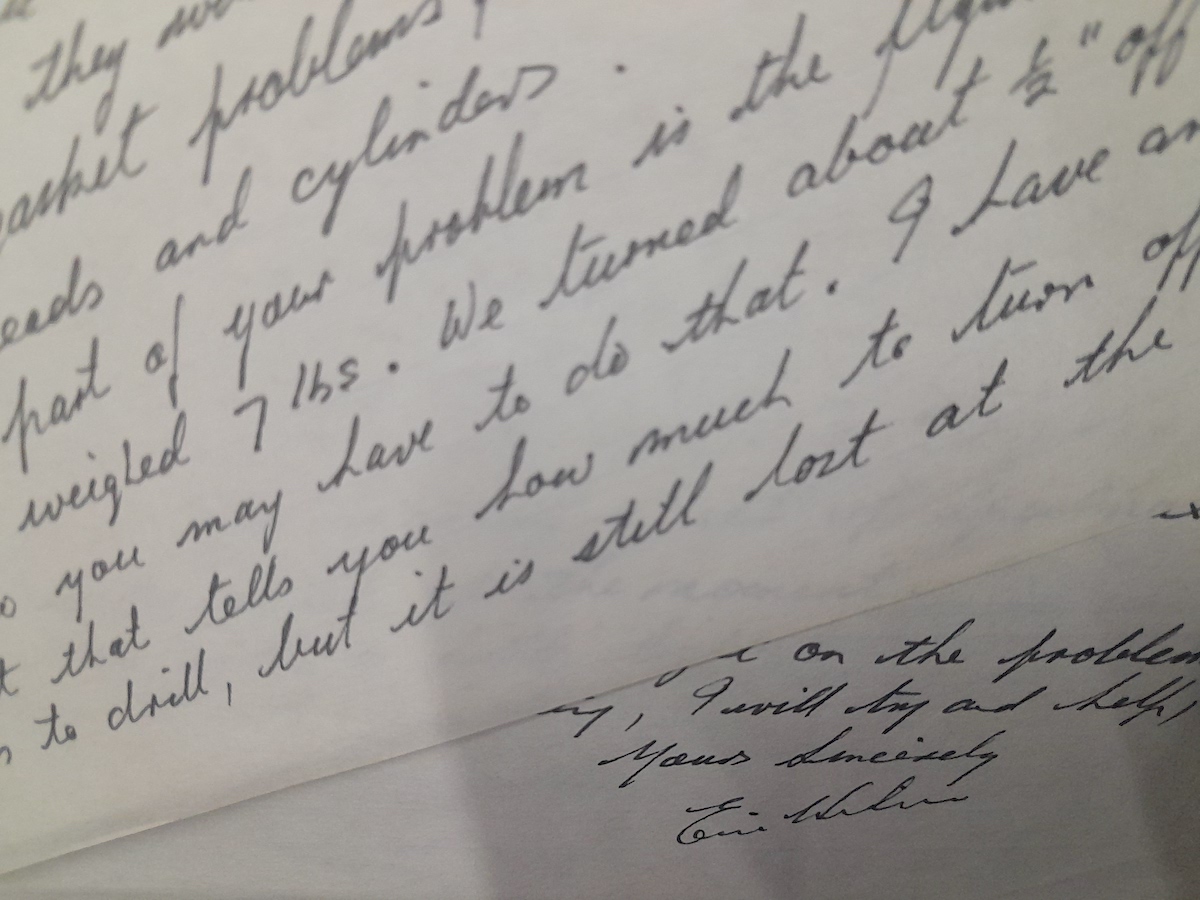 they
gasket problems,
heads and cylinders.
part of your problem is the
weighed 7 lbs. We turned about ½" off
you may have to do that. I have an
that tells you how much to turn off
to drill, but it is still lost at the
on the problem
, I will try and help,
Yours Sincerely
Eric